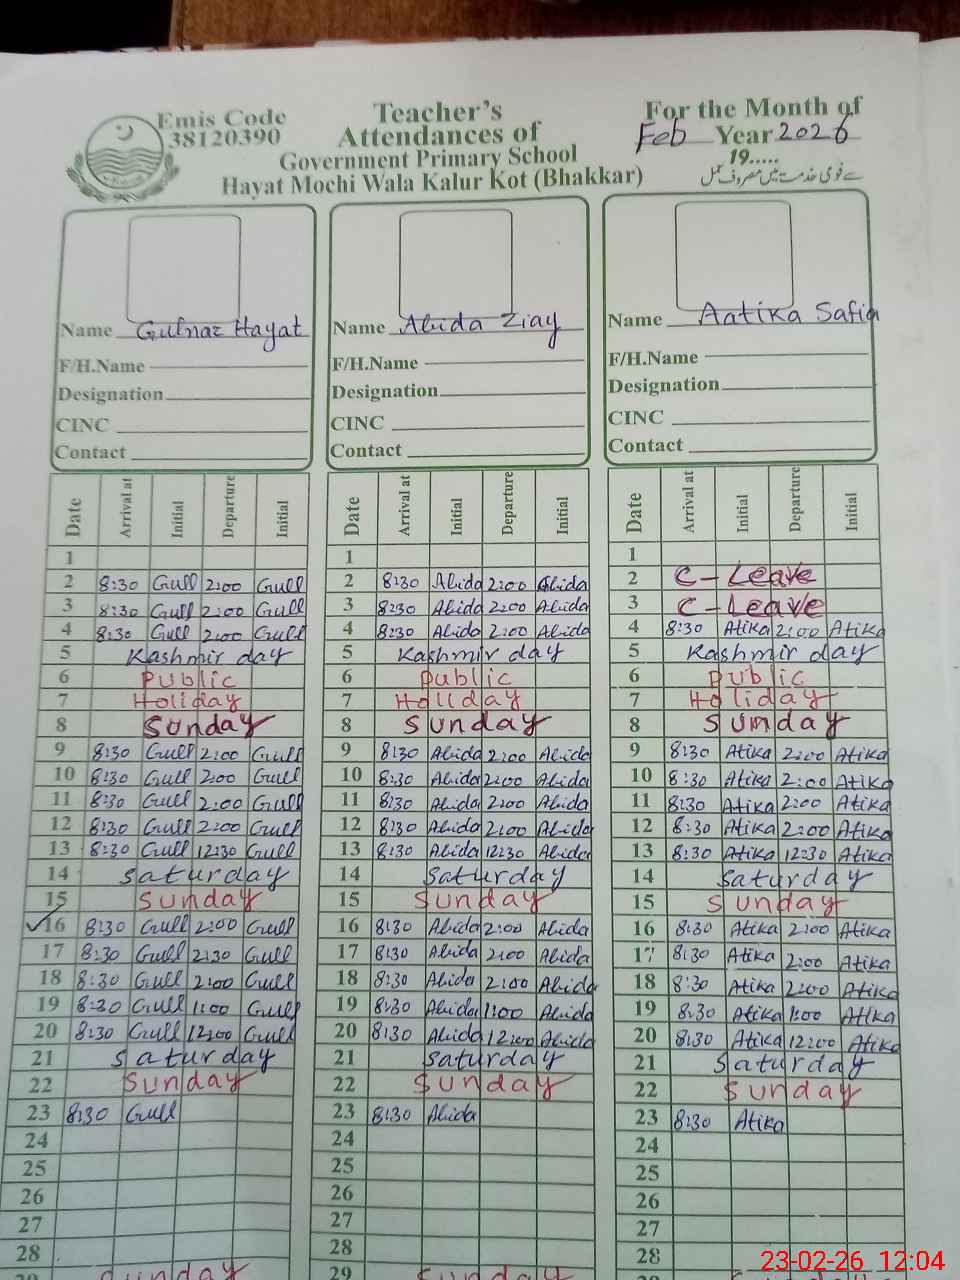 Emis Code
38120390
Teacher's
Attendances of
Government Primary School
Hayat Mochi Wala Kalur Kot (Bhakkar)
For the Month of
Feb Year 2026
19.....
Name Gulnaz Hayat
F/H.Name
Designation
CINC
Contact
Name Abida Ziay
F/H.Name
Designation
CINC
Contact
Name Aatika Safia
F/H.Name
Designation
CINC
Contact
Date Arrival at Initial Departure Initial
1
2 8:30 Gull 2:00 Gull
3 8:30 Gull 2:00 Gull
4 8:30 Gull 2:00 Gull
5 Kashmir day
6 Public
7 Holiday
8 Sunday
9 8:30 Gull 2:00 Gull
10 8:30 Gull 2:00 Gull
11 8:30 Gull 2:00 Gull
12 8:30 Gull 2:00 Gull
13 8:30 Gull 12:30 Gull
14 Saturday
15 Sunday
16 8:30 Gull 2:00 Gull
17 8:30 Gull 2:30 Gull
18 8:30 Gull 2:00 Gull
19 8:30 Gull 1:00 Gull
20 8:30 Gull 12:00 Gull
21 Saturday
22 Sunday
23 8:30 Gull
24
25
26
27
28
Sunday
Date Arrival at Initial Departure Initial
1
2 8:30 Abida 2:00 Abida
3 8:30 Abida 2:00 Abida
4 8:30 Abida 2:00 Abida
5 Kashmir day
6 Public
7 Holiday
8 Sunday
9 8:30 Abida 2:00 Abida
10 8:30 Abida 2:00 Abida
11 8:30 Abida 2:00 Abida
12 8:30 Abida 2:00 Abida
13 8:30 Abida 12:30 Abida
14 Saturday
15 Sunday
16 8:30 Abida 2:00 Abida
17 8:30 Abida 2:00 Abida
18 8:30 Abida 2:00 Abida
19 8:30 Abida 1:00 Abida
20 8:30 Abida 12:00 Abida
21 Saturday
22 Sunday
23 8:30 Abida
24
25
26
27
28
29 Sunday
Date Arrival at Initial Departure Initial
1
2 C-Leave
3 C-Leave
4 8:30 Atika 2:00 Atika
5 Kashmir day
6 Public
7 Holiday
8 Sunday
9 8:30 Atika 2:00 Atika
10 8:30 Atika 2:00 Atika
11 8:30 Atika 2:00 Atika
12 8:30 Atika 2:00 Atika
13 8:30 Atika 12:30 Atika
14 Saturday
15 Sunday
16 8:30 Atika 2:00 Atika
17 8:30 Atika 2:00 Atika
18 8:30 Atika 2:00 Atika
19 8:30 Atika 1:00 Atika
20 8:30 Atika 12:00 Atika
21 Saturday
22 Sunday
23 8:30 Atika
24
25
26
27
28
23-02-26 12:04